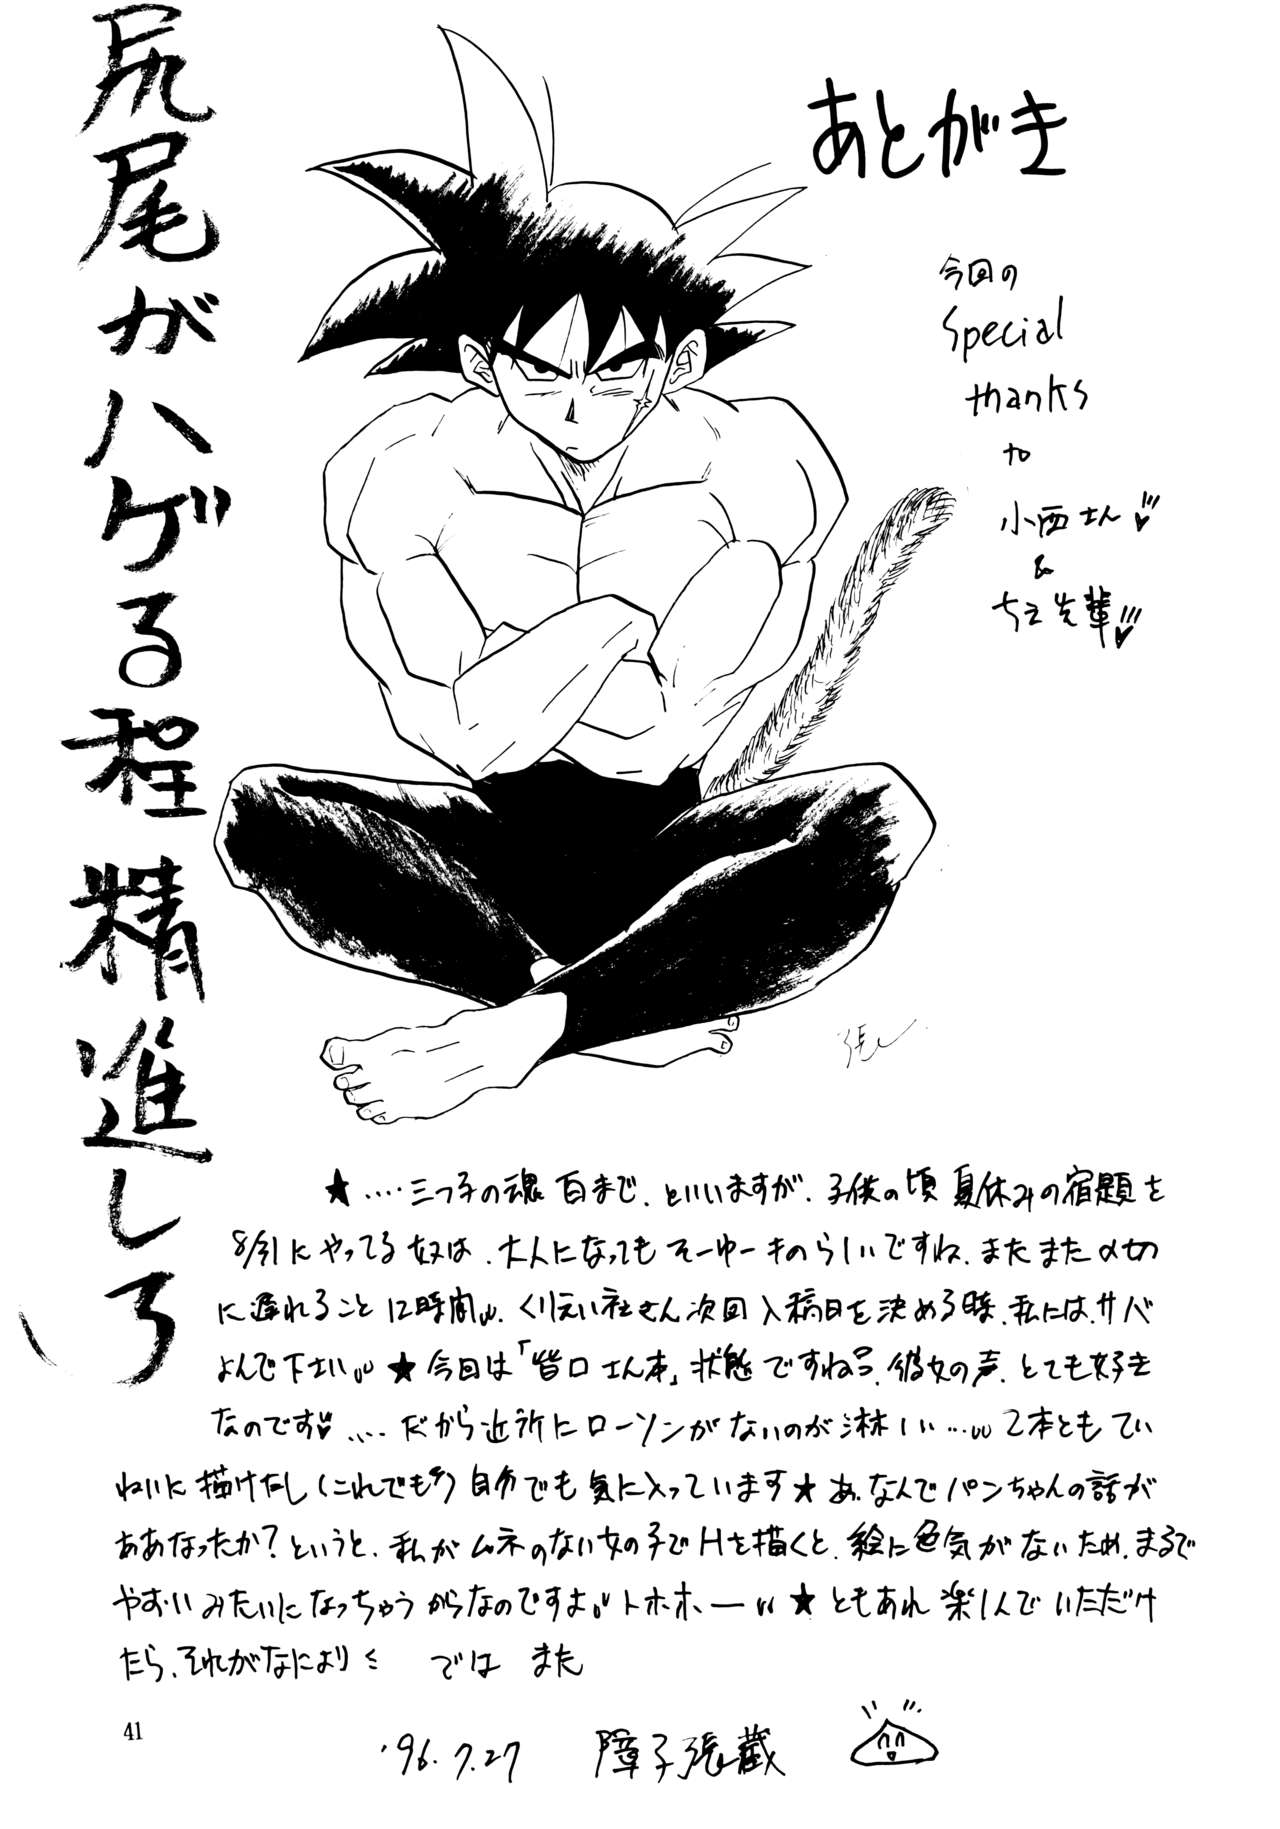 あとがき
今回の
Special
thanks
to
小西さん
&
ちえ先輩
尻尾がハゲる程精進しろ
★‥‥三つ子の魂百まで、といいますが、子供の頃夏休みの宿題を
8/31にやってる奴は、大人になってもそーゆーものらしいですね、またまた〆切
に遅れること12時間。くりえい社さん次回入稿日を決める時、私には、サバ
よんで下さい。★今回は「皆口さん本」状態ですね、彼女の声、とても好き
なのです‥‥だから近所にローソンがないのが淋しい…2本ともてい
ねいに描けたし(これでも)自分でも気に入っています★あ、なんでパンちゃんの話が
ああなったか?というと、私がムネのない女の子でHを描くと、絵に色気がないため、まるで
やおいみたいになっちゃうからなのですよ。トホホー★ともあれ楽しんでいただけ
たら、それがなにより では また
'96.7.27 障子張蔵
41